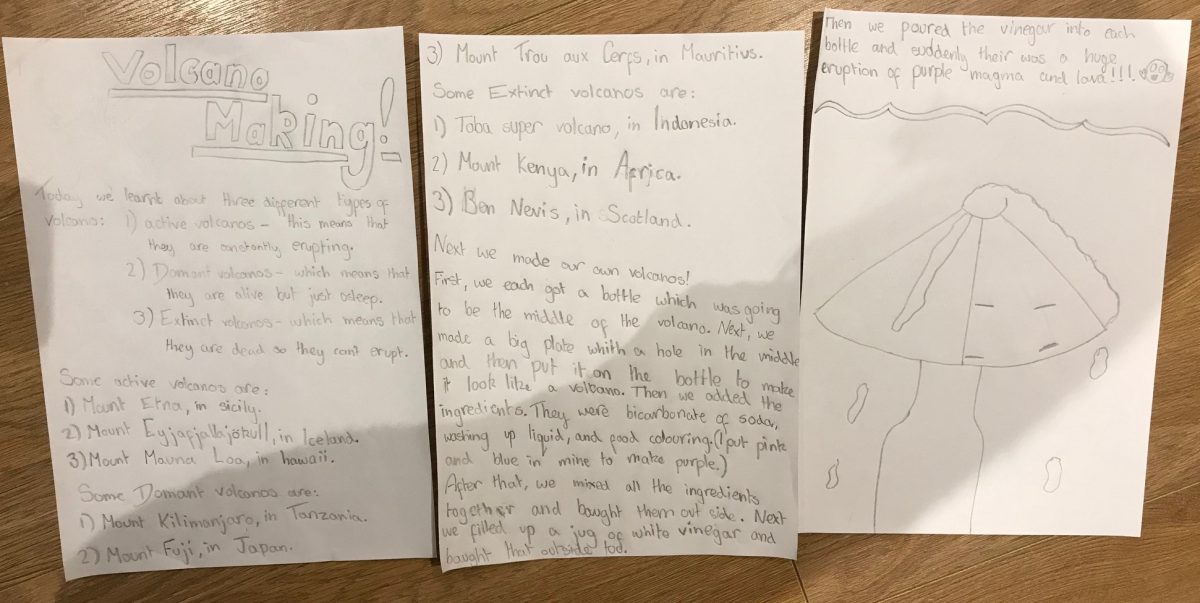 Volcano
Making!
Today we learnt about three different types of
volcano: 1) active volcanos - this means that
they are constantly erupting.
2) Domant volcanos - which means that
they are alive but just asleep.
3) Extinct volcanos - which means that
they are dead so they can't erupt.
Some active volcanos are:
1) Mount Etna, in sicily.
2) Mount Eyjafjallajökull, in Iceland.
3) Mount Mauna Loa, in hawaii.
Some Domant volcanos are:
1) Mount Kilimanjaro, in Tanzania.
2) Mount Fuji, in Japan.
3) Mount Trou aux Cerfs, in Mauritius.
Some Extinct volcanos are:
1) Toba super volcano, in Indonesia.
2) Mount Kenya, in Africa.
3) Ben Nevis, in Scotland.
Next we made our own volcanos!
First, we each got a bottle which was going
to be the middle of the volcano. Next, we
made a big plate whith a hole in the middle
and then put it on the bottle to make
it look like a volcano. Then we added the
ingredients. They were bicarbonate of soda,
washing up liquid, and food colouring. (I put pink
and blue in mine to make purple.)
After that, we mixed all the ingredients
together and baught them out side. Next
we filled up a jug of white vinegar and
baught that outside too.
Then we poured the vinegar into each
bottle and suddenly their was a huge
eruption of purple magma and lava!!!!